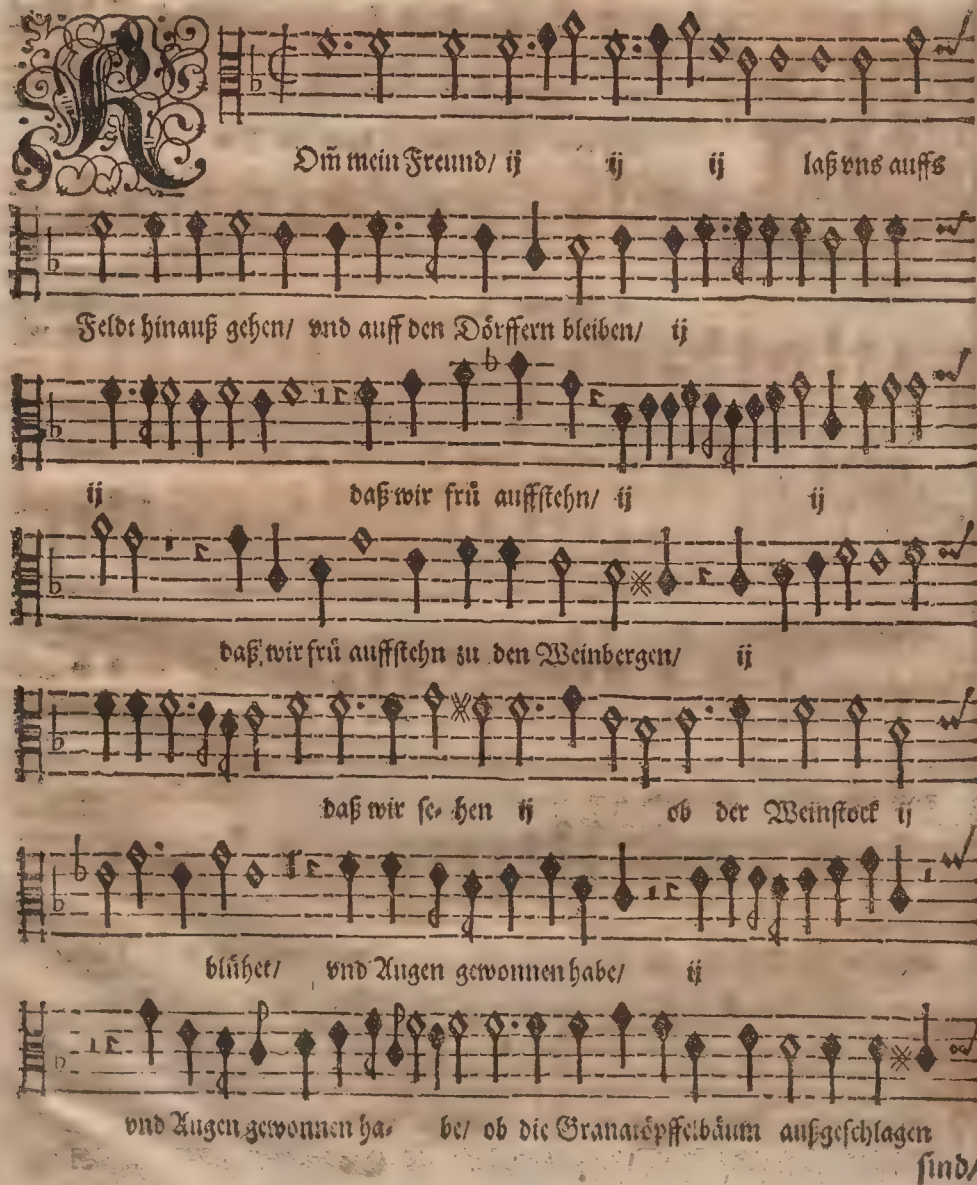 KOm̃ mein Freund/ ij ij ij laß vns auffs
Feldt hinauß gehen/ vnd auff den Dörffern bleiben/ ij
ij daß wir frü auffstehn/ ij ij
daß wir frü auffstehn zu den Weinbergen/ ij
daß wir se- hen ij ob der Weinstock ij
blühet/ vnd Augen gewonnen habe/ ij
vnd Augen gewonnen ha- be/ ob die Granatöpffelbäum außgeschlagen
sind/